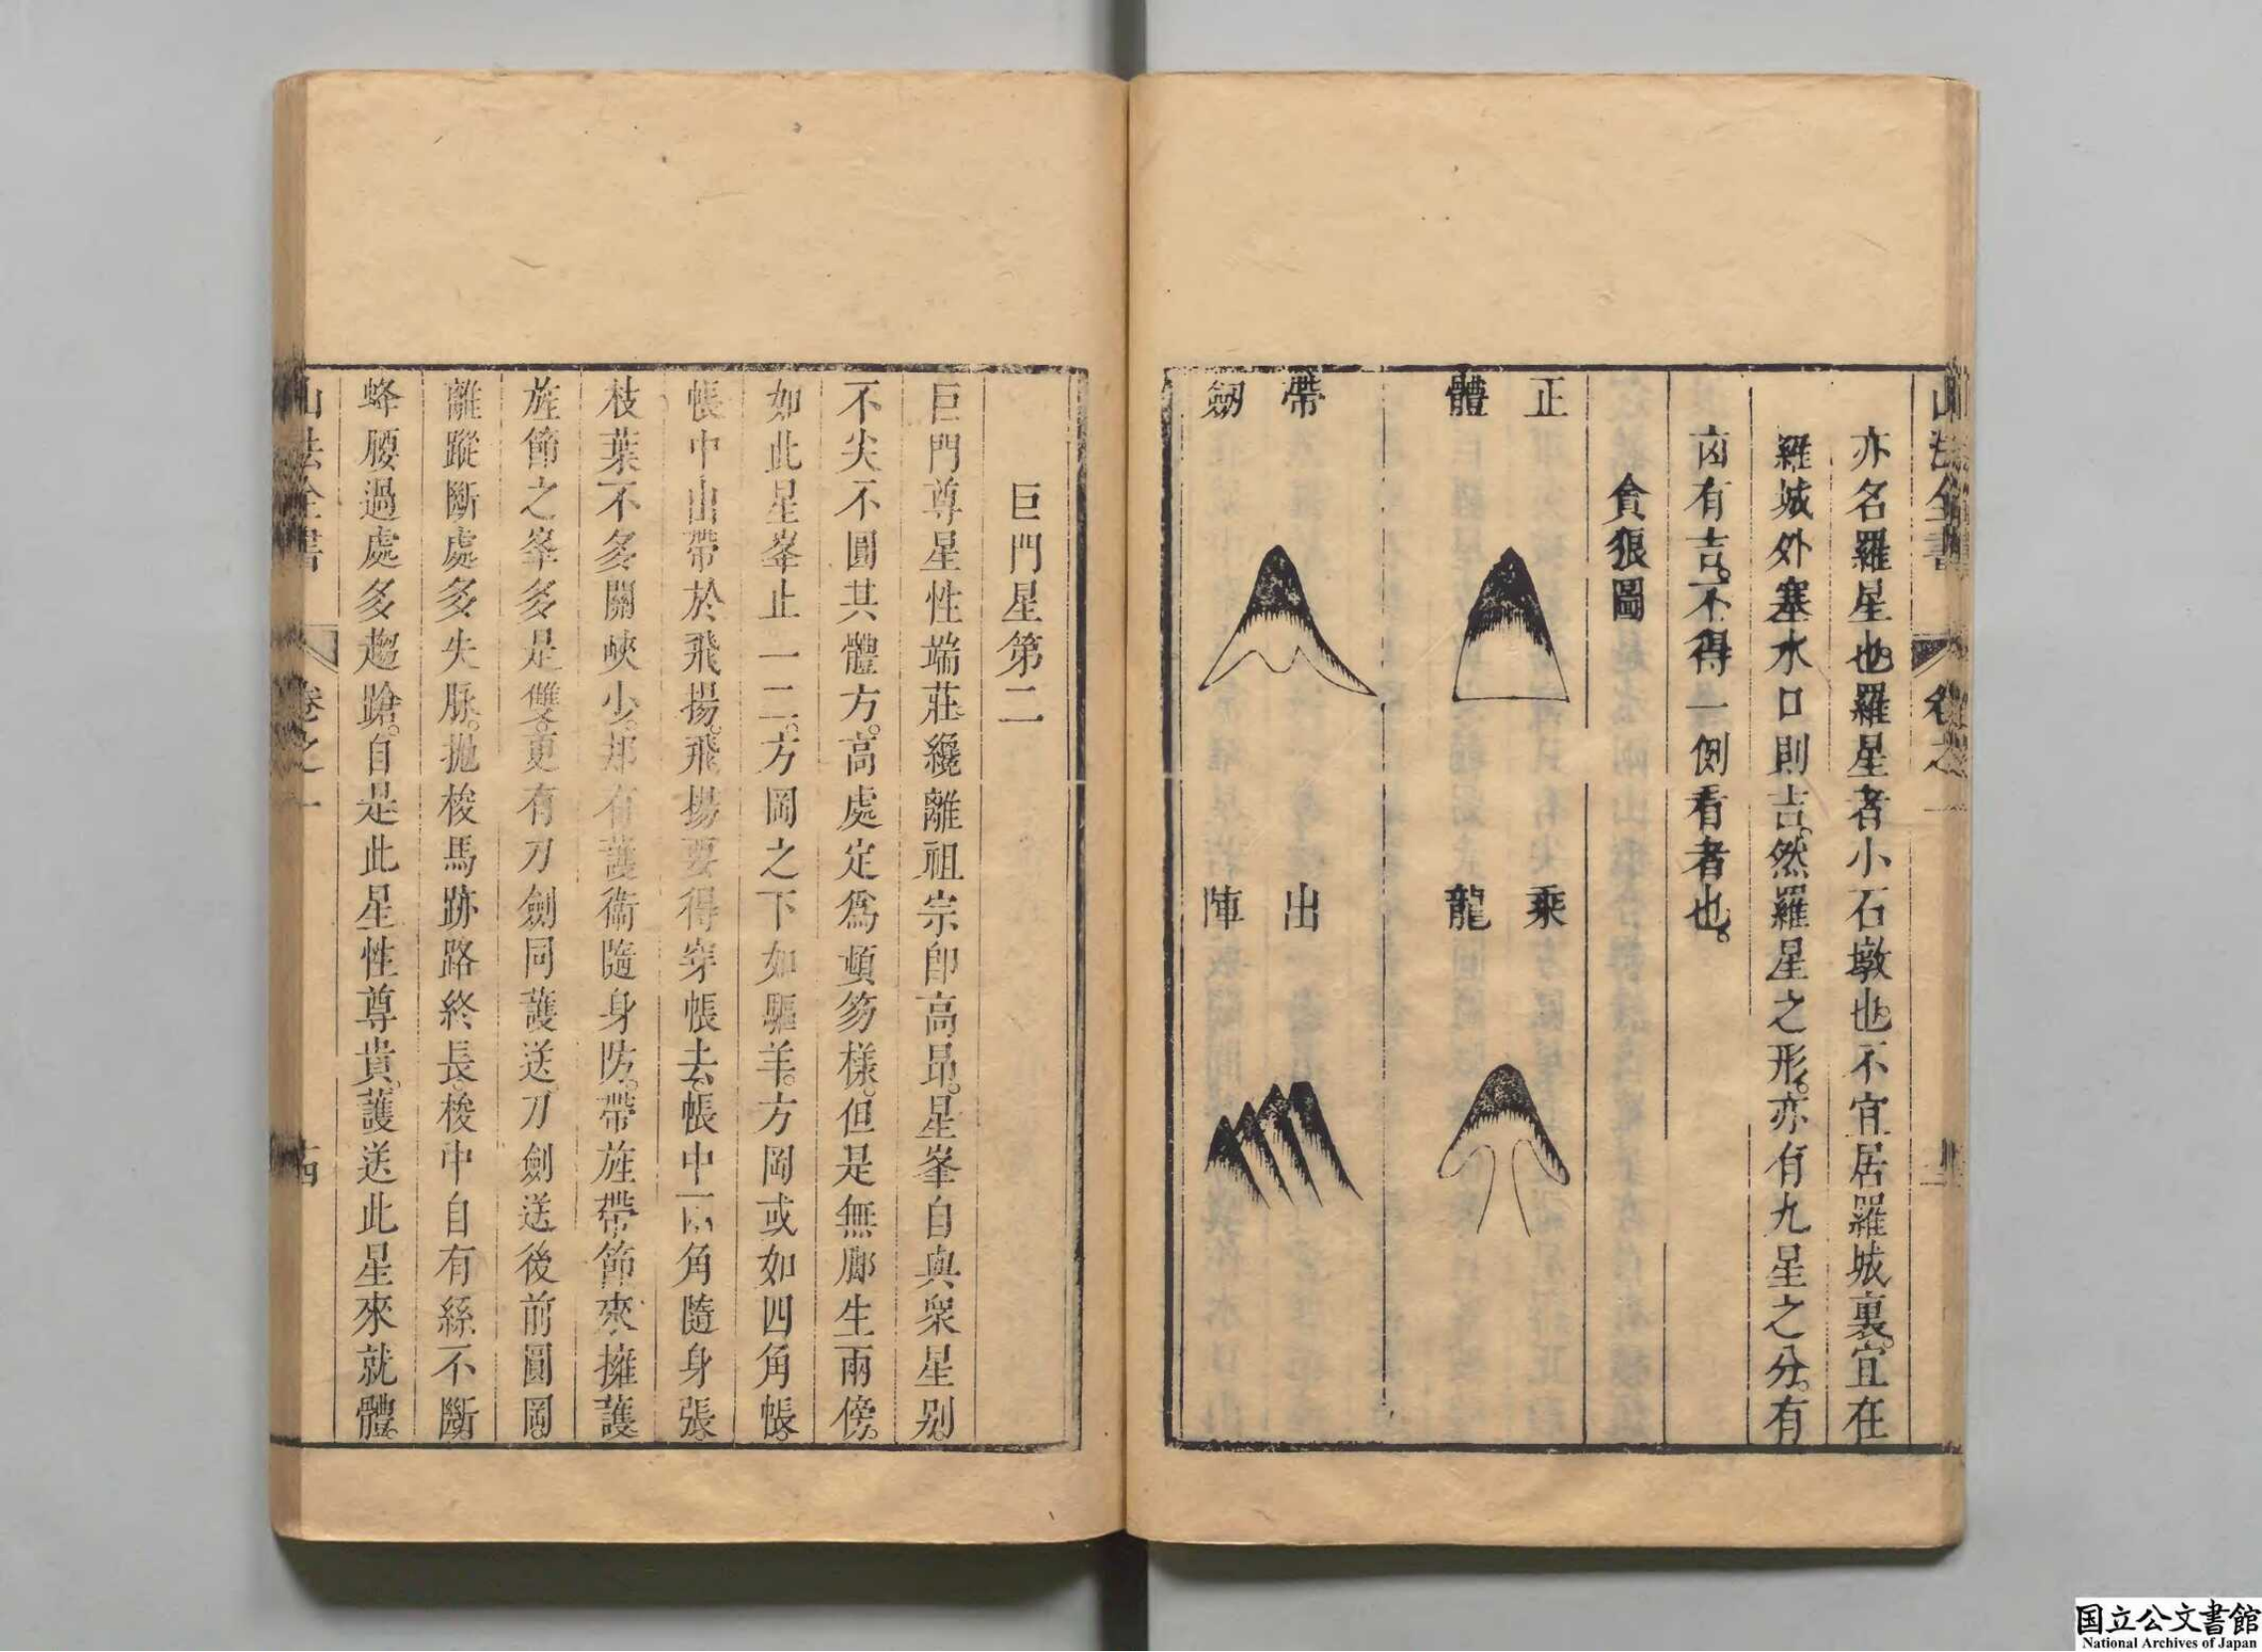 山法全書
卷之一
亦名羅星也。羅星者小石墩也。不宜居羅城裏。宜在
羅城外塞水口則吉。然羅星之形。亦有九星之分。有
凶有吉。不得一例看者也。
貪狼圖
正體
乘龍
帶劔
出陣
巨門星第二
巨門尊星性端莊纔離祖宗卽高昻。星峯自與衆星别。
不尖不圓其體方。高處定爲頓笏樣。但是無脚生兩傍。
如此星峯止一二。方岡之下如驅羊。方岡或如四角帳。
帳中出帶於飛揚。飛揚要得穿帳去。帳中兩角隨身張。
枝葉不多關峽少。那有護衞隨身防。帶旌帶節來擁護
旌節之峯多是雙。更有刀劍同護送。刀劍送後前圓岡。
離蹤斷處多失脉。抛梭馬跡路終長。梭中自有絲不斷
蜂腰過處多趨蹌。自是此星性尊貴。護送此星來就體。
山法全書
卷之一
十四
国立公文書館
National Archives of Japan